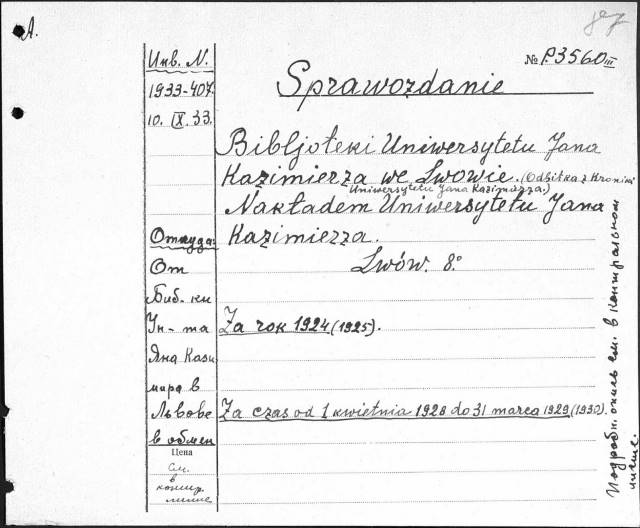 А.
87
Инв. N.
1933-407.
10. IX. 33.
№ P.3560 III
Sprawozdanie
Bibljoteki Uniwersytetu Jana
Kazimierza we Lwowie. (Odbitka z Kroniki
Uniwersytetu Jana Kazimierza.)
Nakładem Uniwersytetu Jana
Kazimierza.
Lwów. 8.°
Откуда:
От
Биб-ки
Ун-та
Яна Кази
мира в
Львове
в обмен
Цена
См.
в
Za rok 1924 (1925).
Za czas od 1 kwietnia 1928 do 31 marca 1929 (1930).
см. в контрольном
листе.